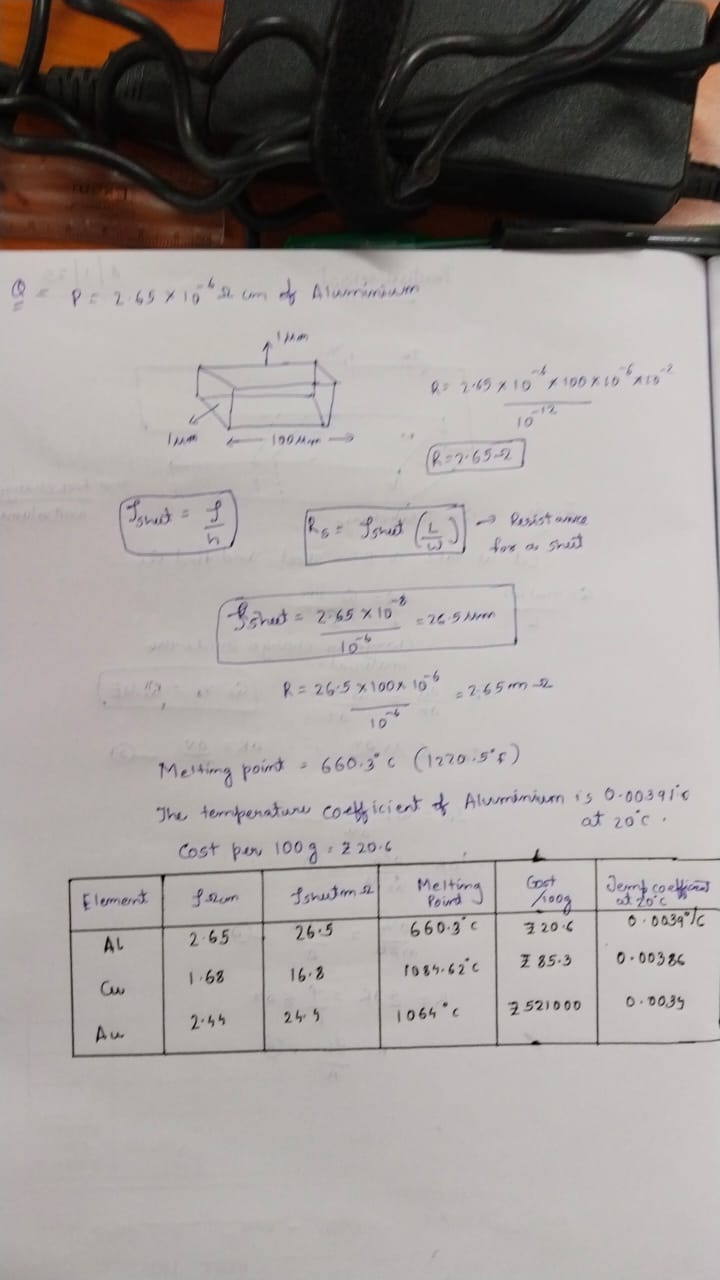 Q = ρ = 2.65 × 10⁻⁶ Ω cm of Aluminium
1 μm
1 μm
100 μm
R = 2.65 × 10⁻⁶ × 100 × 10⁻⁶ × 10⁻²
10⁻¹²
R = 2.65 Ω
ρsheet = ρ
h
Rs = ρsheet (L/W) → Resistance
for a sheet
ρsheet = 2.65 × 10⁻⁸ = 26.5
10⁻⁶
R = 26.5 × 100 × 10⁻⁶ = 2.65 m Ω
10⁻⁶
Melting point = 660.3°C (1220.5°F)
The temperature coefficient of Aluminium is 0.00391°c
at 20°C.
Cost per 100g = ₹ 20.6
Element ρ Ωcm ρsheet m Ω Melting Point Cost /100g Temp coefficient at 20°C
AL 2.65 26.5 660.3°C ₹ 20.6 0.0039°/C
Cu 1.68 16.8 1084.62°C ₹ 85.3 0.00386
Au 2.44 24.4 1064°C ₹ 521000 0.0034